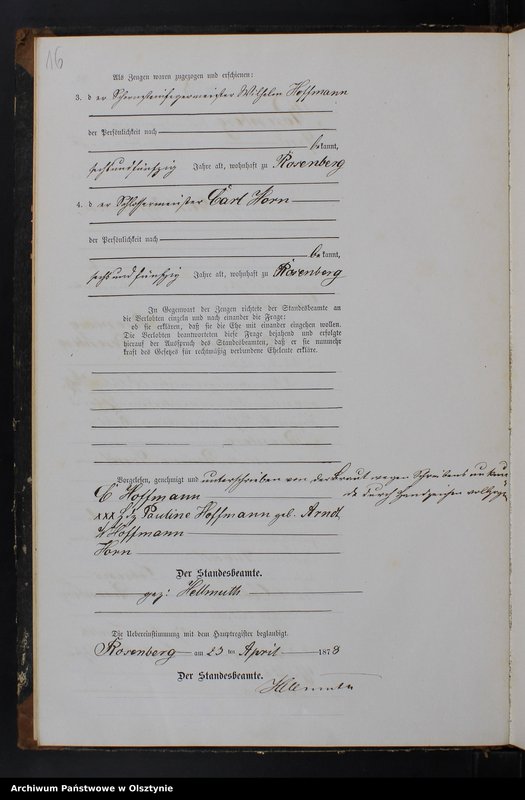 16
Als Zeugen waren zugezogen und erschienen:
3. d er Schornsteinfegermeister Wilhelm Hoffmann
der Persönlichkeit nach
bekannt,
sechsundfünfzig Jahre alt, wohnhaft zu Rosenberg
4. d er Schlossermeister Carl Horn
der Persönlichkeit nach
bekannt,
sechsundfünfzig Jahre alt, wohnhaft zu Rosenberg
In Gegenwart der Zeugen richtete der Standesbeamte an
die Verlobten einzeln und nach einander die Frage:
ob sie erklären, daß sie die Ehe mit einander eingehen wollen.
Die Verlobten beantworteten diese Frage bejahend und erfolgte
hierauf der Ausspruch des Standesbeamten, daß er sie nunmehr
kraft des Gesetzes für rechtmäßig verbundene Eheleute erkläre.
Vorgelesen, genehmigt und unterschrieben von der Braut wegen Schreibensunkun-
de durch Handzeichen vollzogen
C Hoffmann
xxx Hdz Pauline Hoffmann geb. Arndt
W Hoffmann
Horn
Der Standesbeamte.
gez: Hellmuth
Die Uebereinstimmung mit dem Hauptregister beglaubigt.
Rosenberg am 23 ten April 1878
Der Standesbeamte.
Hellmuth
Archiwum Państwowe w Olsztynie